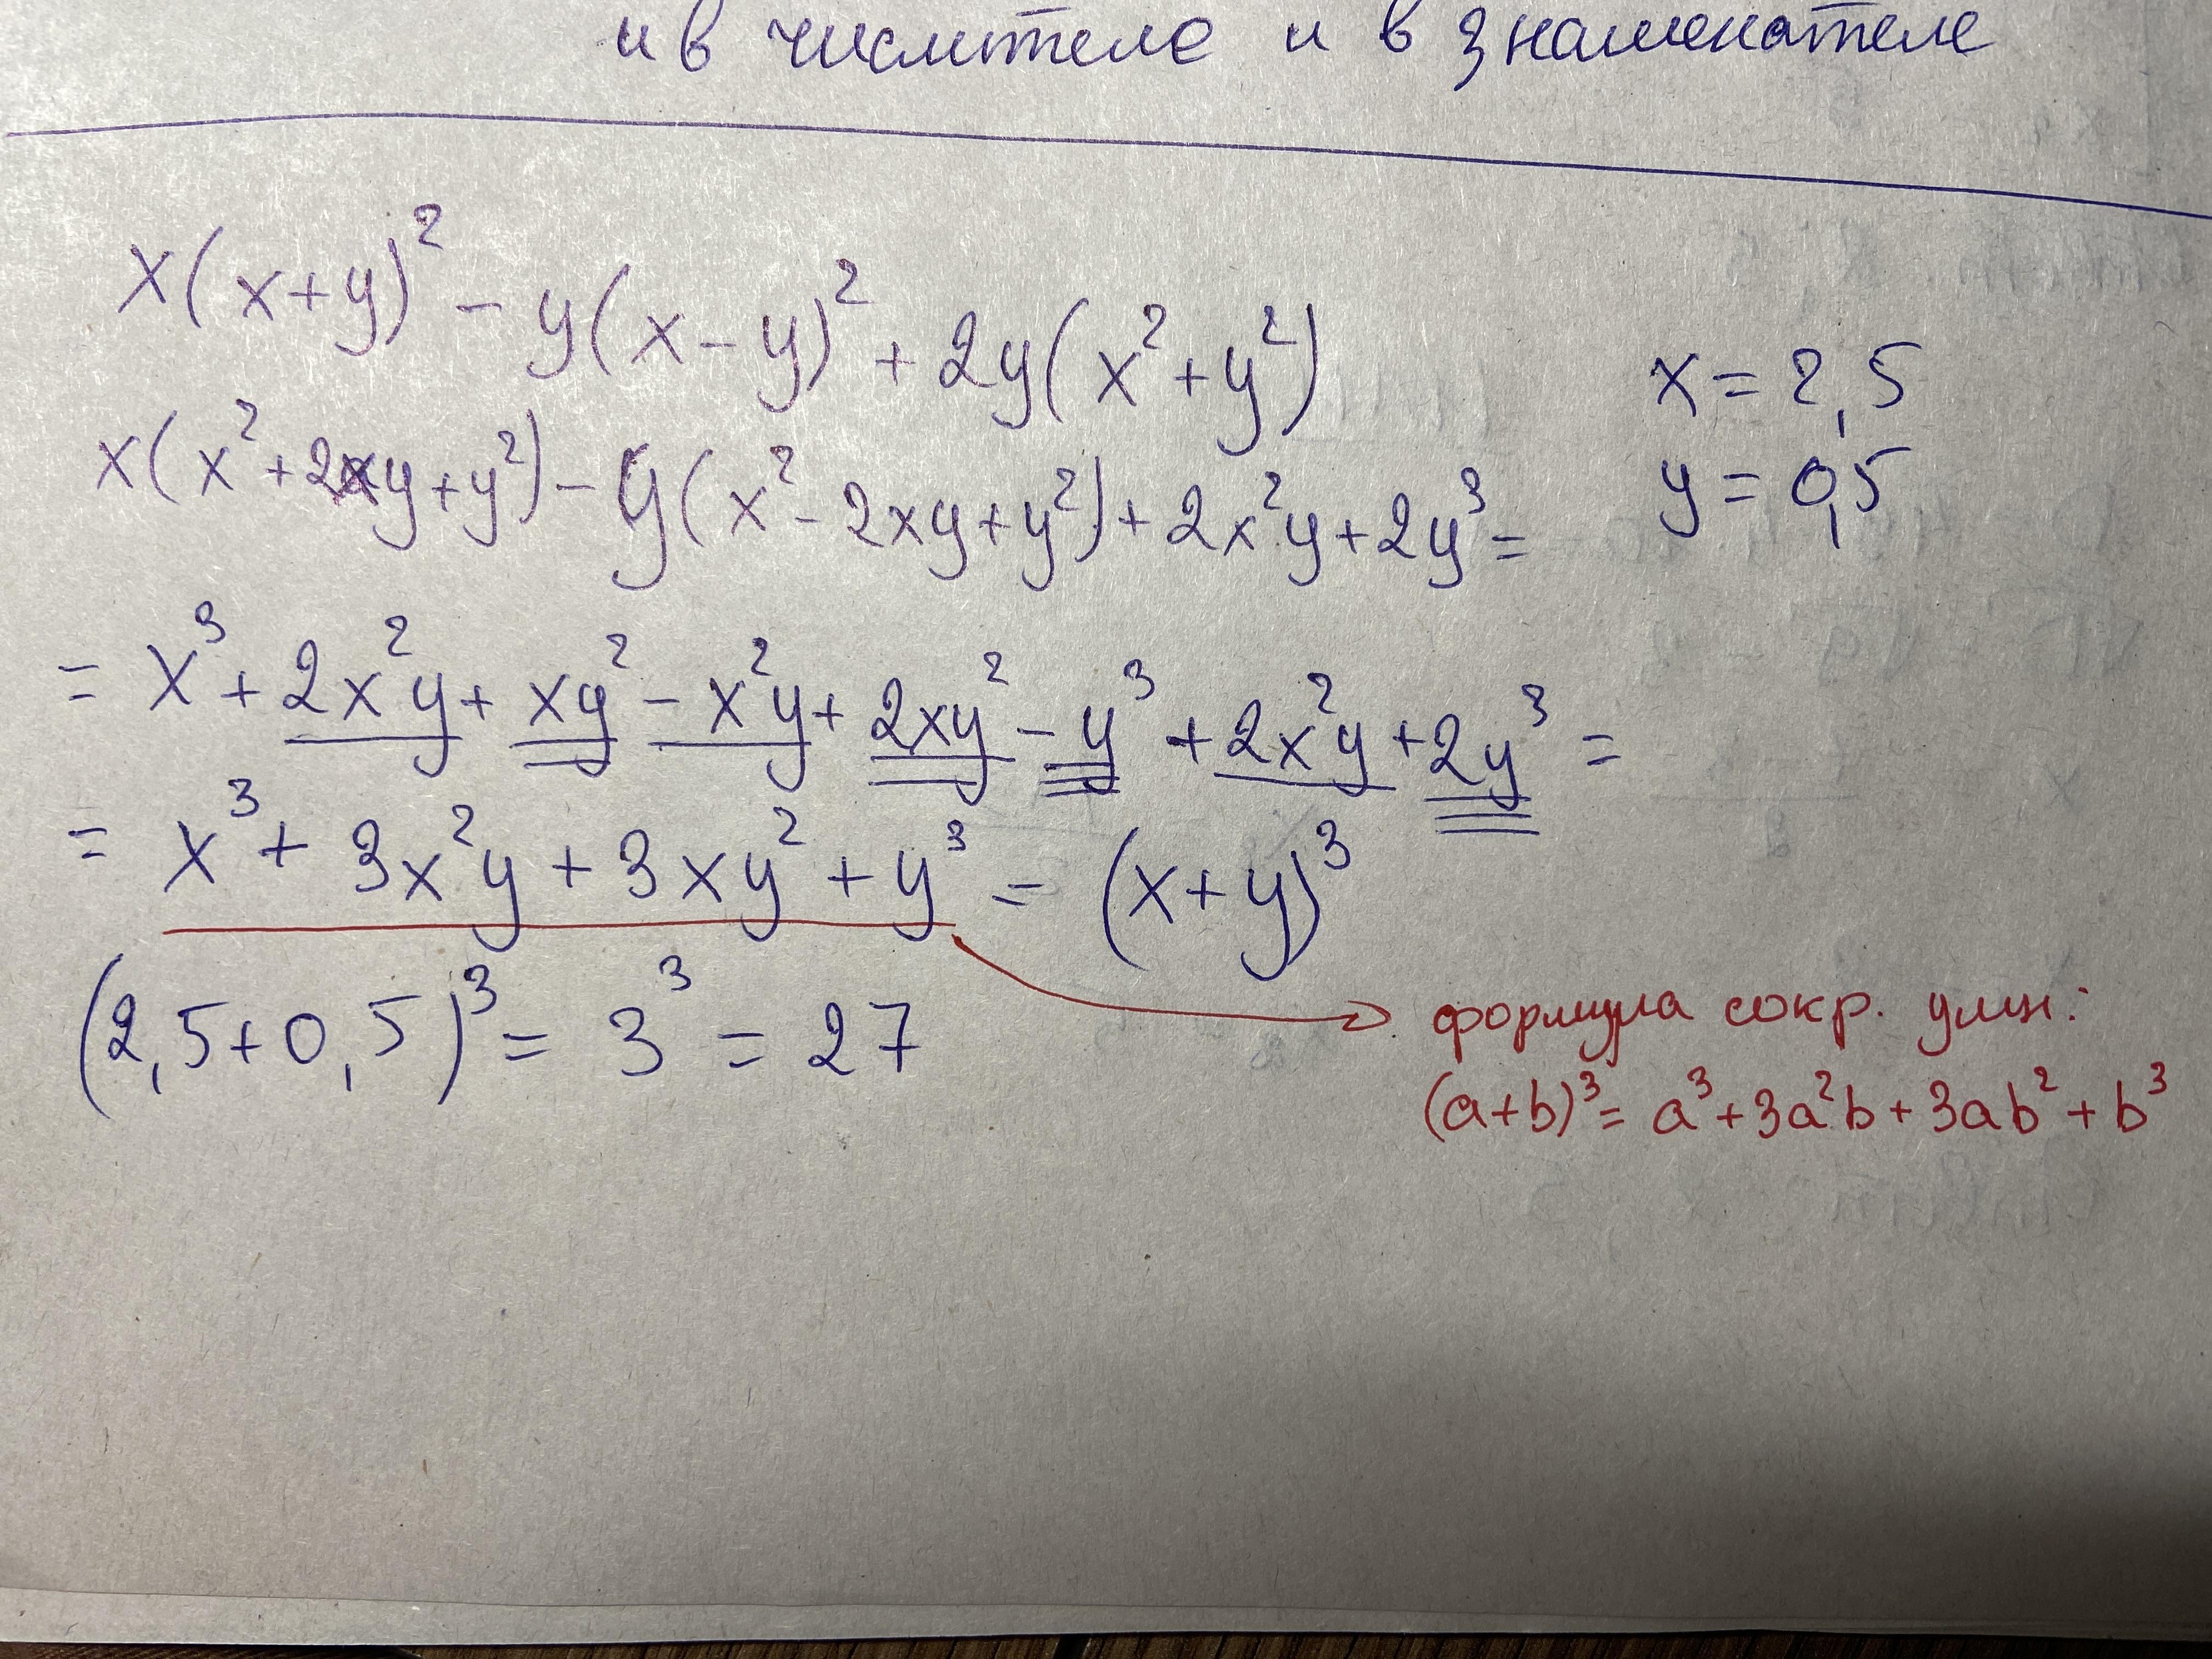 и в числителе и в знаменателе
x(x+y)² - y(x-y)² + 2y(x²+y²)
x = 2,5
x(x²+2xy+y²) - y(x²-2xy+y²) + 2x²y + 2y³ =
y = 0,5
= x³ + 2x²y + xy² - x²y + 2xy² - y³ + 2x²y + 2y³ =
= x³ + 3x²y + 3xy² + y³ = (x+y)³
(2,5+0,5)³ = 3³ = 27
формула сокр. умн:
(a+b)³ = a³+3a²b+3ab²+b³